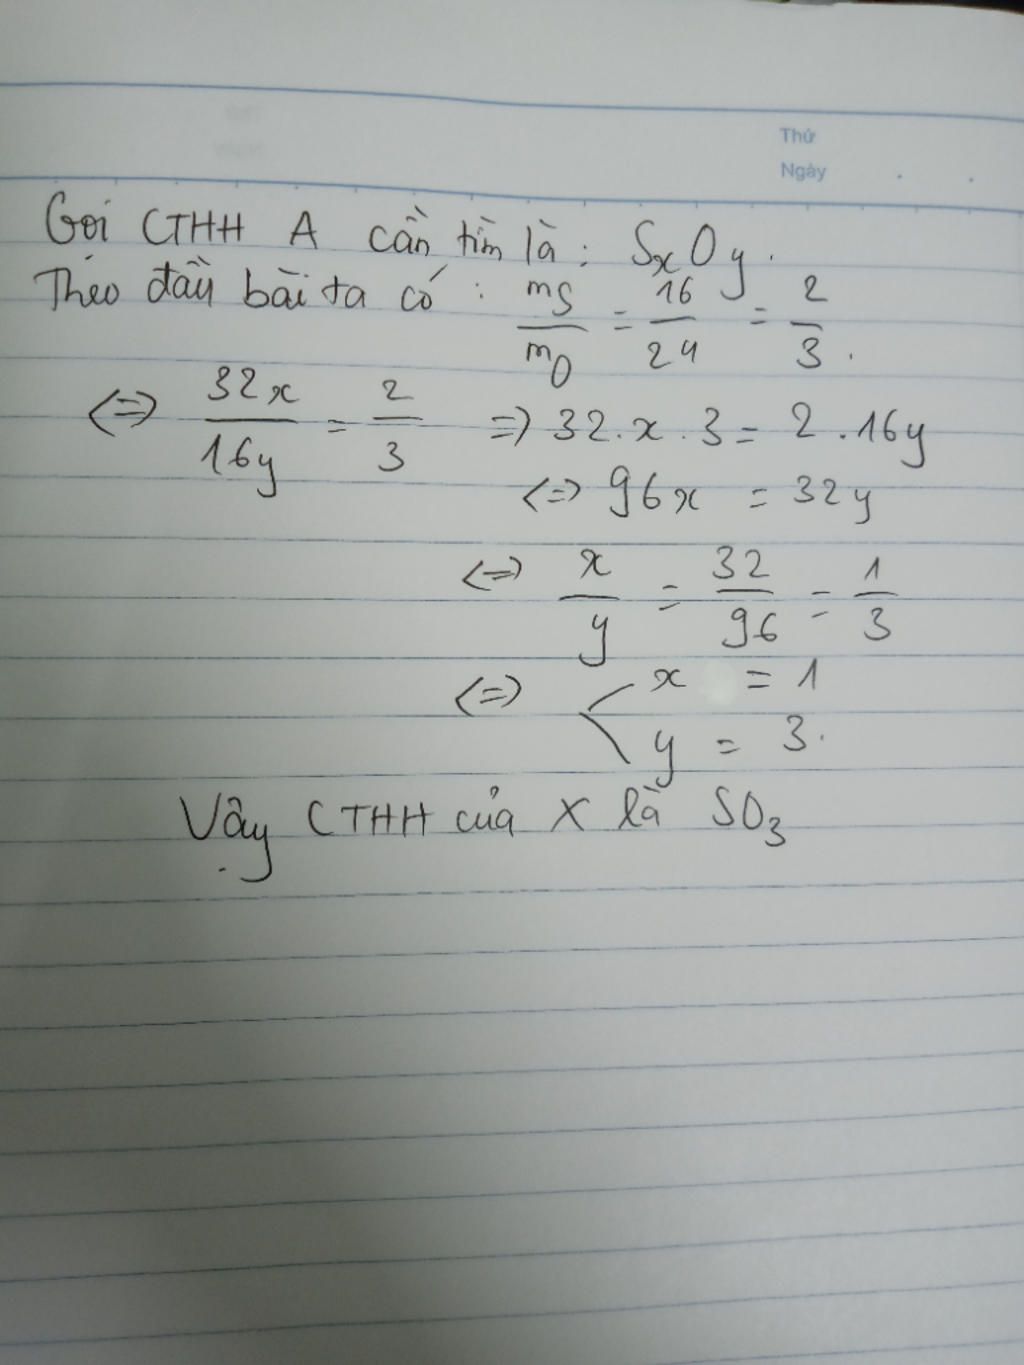 Thứ
Ngày
Gọi CTHH A cần tìm là: SxOy.
Theo đầu bài ta có: mS/mO = 16/24 = 2/3.
<=> 32x/16y = 2/3 => 32.x.3 = 2.16y
<=> 96x = 32y
<=> x/y = 32/96 = 1/3
<=> x = 1
y = 3.
Vậy CTHH của X là SO3